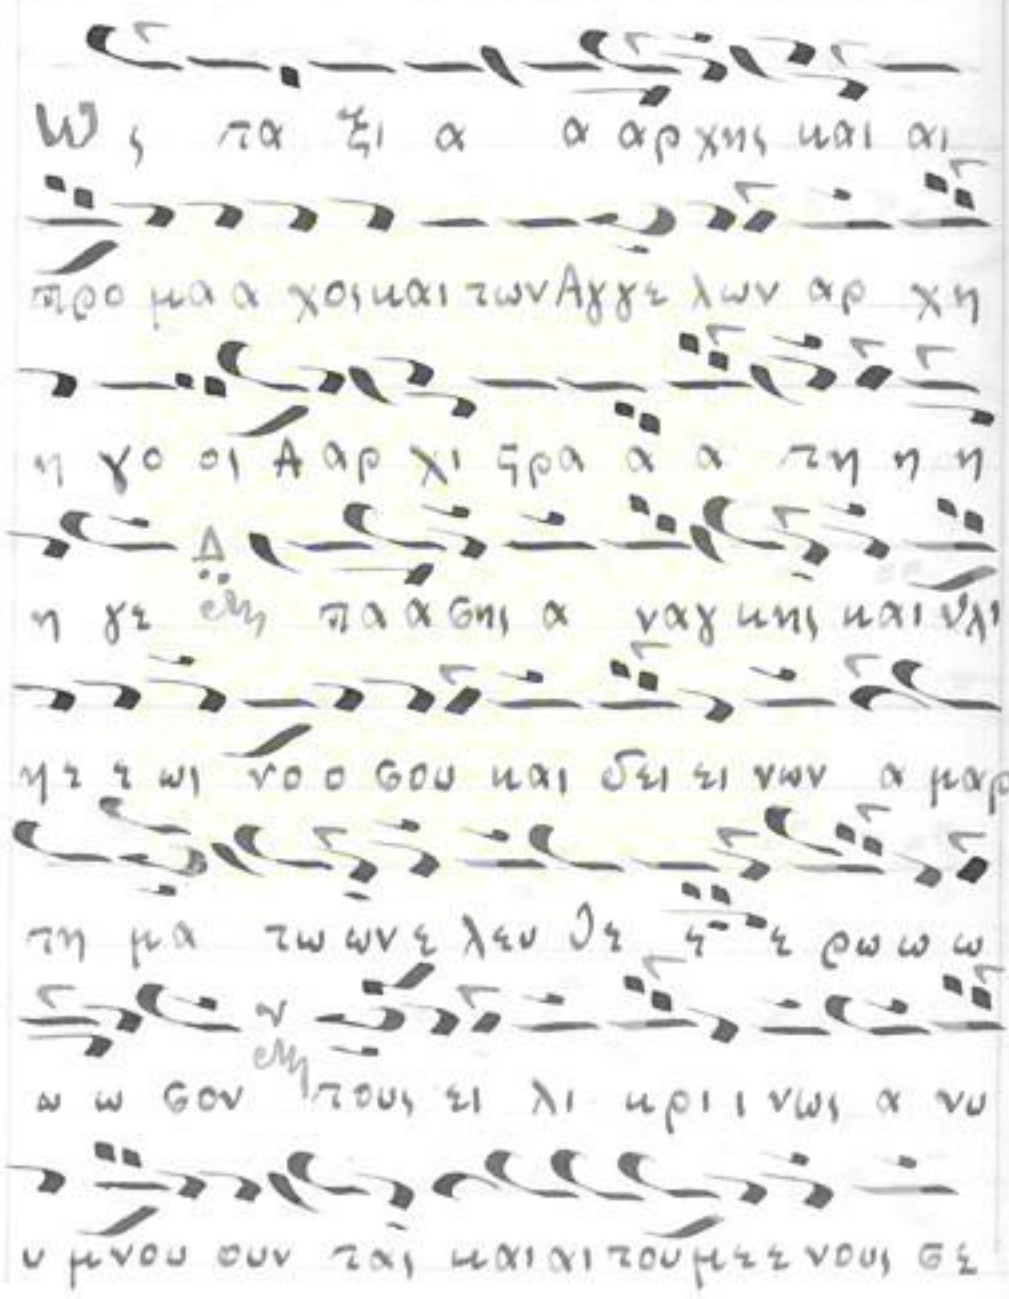 Ως ταξια ααρχης και αι
προ μα α χος και των Αγγε λων αρ χη
η γο οι Α αρ χι ςρα α α τη η η
η γε Δ πα α σης α ναγ κης και θλι
ης ε ωι νο ο σου και δει ει νων α μαρ
τη μα τω ων ε λευ θε ε ε ρω ω ω
ω ω σον ν τους ει λι κρι ι νως α νυ
υ μνου ουν τας και αι του με ε νους σε